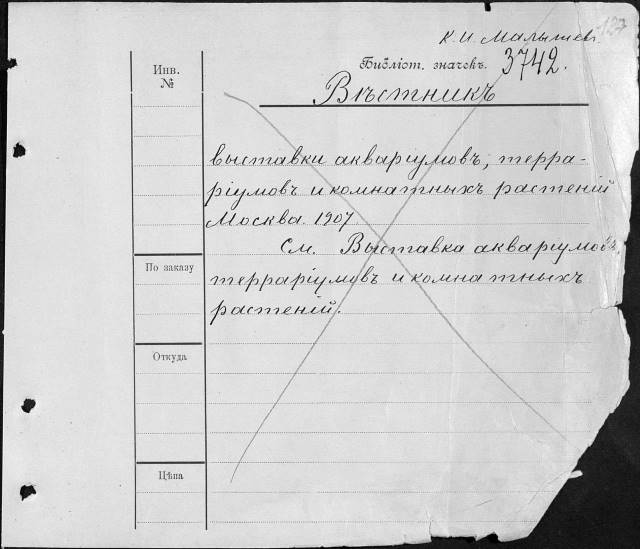 127
К. И. Малышев.
Инв.
№
Библіот. значекъ. 3742.
Вѣстникъ
выставки акваріумовъ, терра-
ріумовъ и комнатныхъ растеній
Москва. 1907.
См. Выставка акваріумовъ,
По заказу
терраріумовъ и комнатныхъ
растеній.
Откуда
Цѣна